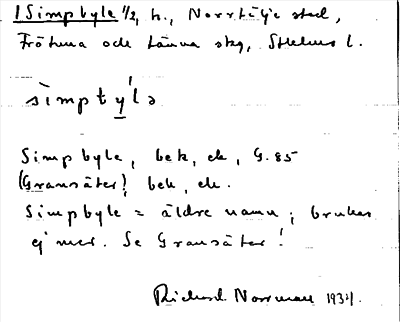 1 Simpbyle 1/2, h., Norrtälje stad,
Frötuna och Länna skg, Sthlms l.
sìmptý̱lə
Simpbyle, bek, ch, G. 85
(Gransäter), bek, ch.
Simpbyle = äldre namn; brukas
ej mer. Se Gransäter!
Richard Norrman 1934.